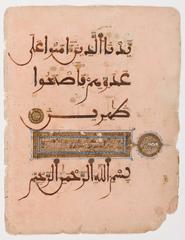 يدنا الذين امنوا على
عدوهم فاصبحوا
ظهرين
بسم الله الرحمن الرحيم